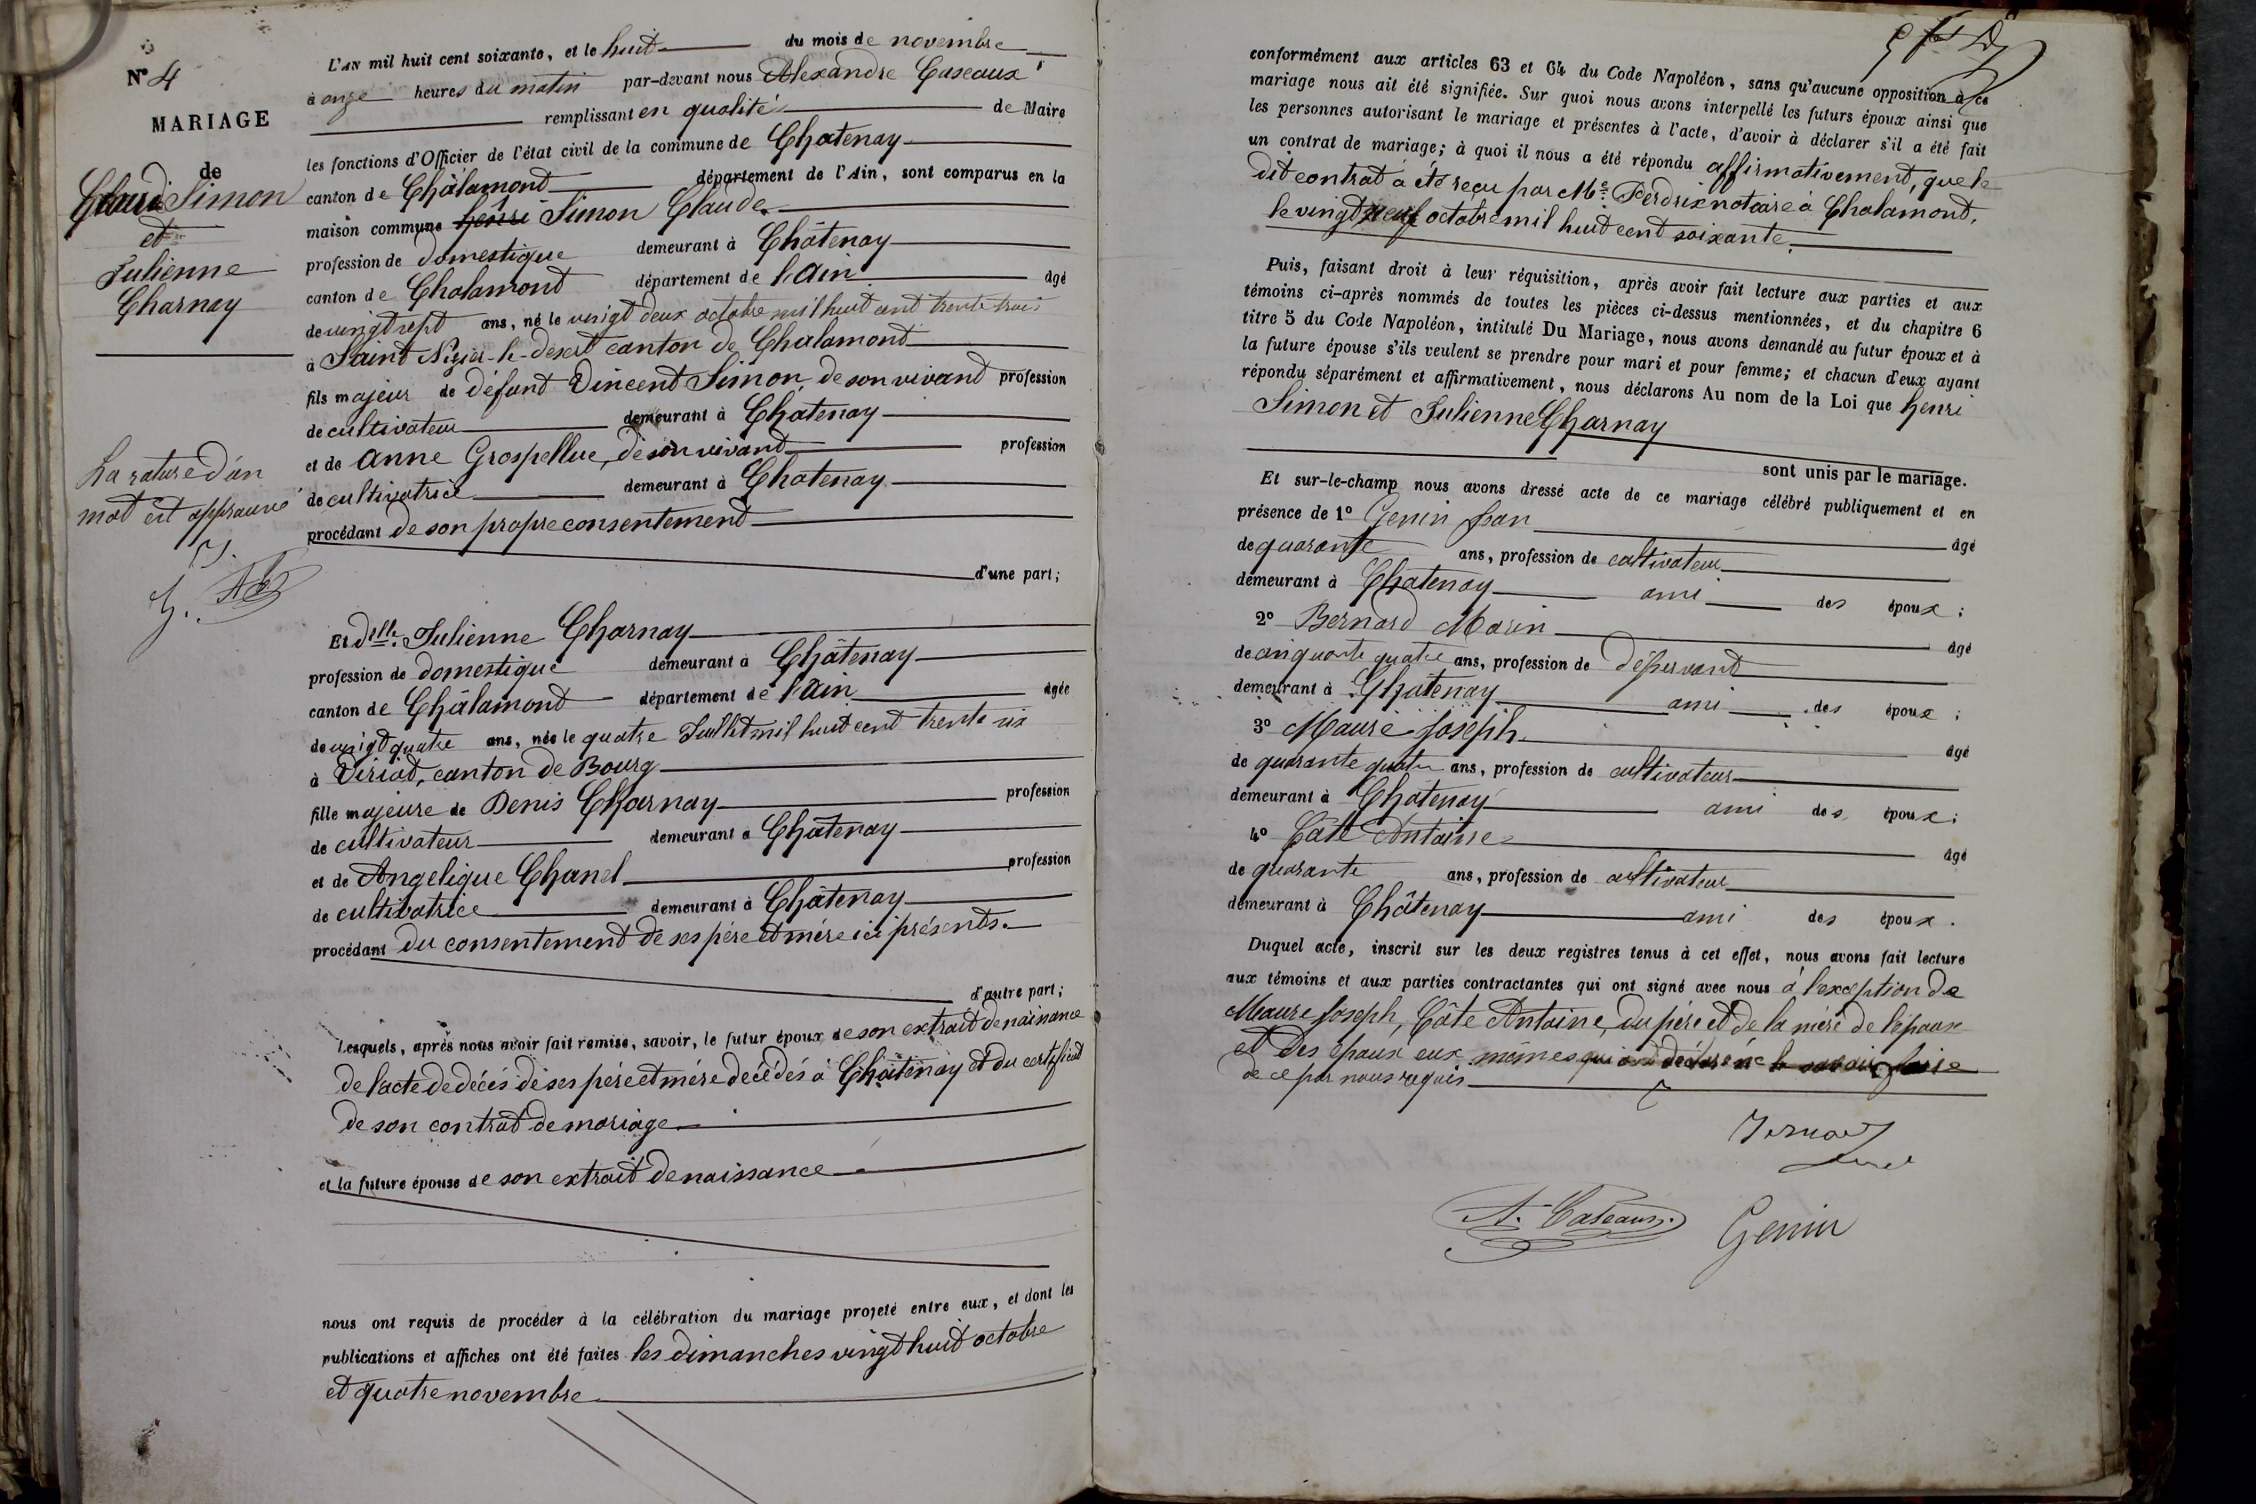 N° 4
MARIAGE
de
Claude Simon
et
Julienne
Charnay
La rature d'un
mot est approuvé
L'AN mil huit cent soixante, et le huit du mois de novembre
à onze heures du matin par-devant nous Alexandre Caseaux
remplissant en qualité de Maire
les fonctions d'Officier de l'état civil de la commune de Chatenay
canton de Châlamont département de l'Ain, sont comparus en la
maison commune henri Simon Claude
profession de domestique demeurant à Châtenay
canton de Chalamont département de l'Ain âgé
de vingt sept ans, né le vingt deux octobre mil huit cent trente trois
à Saint Nizier-le-désert canton de Chalamont
fils majeur de défunt Vincent Simon, de son vivant profession
de cultivateur demeurant à Chatenay
et de Anne Grospellue, de son vivant profession
de cultivatrice demeurant à Chatenay
procédant de son propre consentement
d'une part;
Et delle Julienne Charnay
profession de domestique demeurant à Châtenay
canton de Châlamont département de l'Ain âgée
de vingt quatre ans, née le quatre Juillet mil huit cent trente six
à Viriat, canton de Bourg
fille majeure de Denis Charnay profession
de cultivateur demeurant à Châtenay
et de Angelique Chanel profession
de cultivatrice demeurant à Châtenay
procédant du consentement de ses père et mère ici présents.
d'autre part;
Lesquels, après nous avoir fait remise, savoir, le futur époux de son extrait de naissance
de l'acte de décés de ses père et mère decédés à Châtenay et du certificat
de son contrat de mariage
et la future épouse de son extrait de naissance
nous ont requis de procéder à la célébration du mariage projeté entre eux, et dont les
publications et affiches ont été faites les dimanches vingt huit octobre
et quatre novembre
conformément aux articles 63 et 64 du Code Napoléon, sans qu'aucune opposition à ce
mariage nous ait été signifiée. Sur quoi nous avons interpellé les futurs époux ainsi que
les personnes autorisant le mariage et présentes à l'acte, d'avoir à déclarer s'il a été fait
un contrat de mariage; à quoi il nous a été répondu affirmativement, que le
dit contrat a été reçu par Me Perdrix notaire à Chalamont,
le vingt neuf octobre mil huit cent soixante.
Puis, faisant droit à leur réquisition, après avoir fait lecture aux parties et aux
témoins ci-après nommés de toutes les pièces ci-dessus mentionnées, et du chapitre 6
titre 5 du Code Napoléon, intitulé Du Mariage, nous avons demandé au futur époux et à
la future épouse s'ils veulent se prendre pour mari et pour femme; et chacun d'eux ayant
répondu séparément et affirmativement, nous déclarons Au nom de la Loi que henri
Simon et Julienne Charnay
sont unis par le mariage.
Et sur-le-champ nous avons dressé acte de ce mariage célébré publiquement et en
présence de 1° Genin Jean âgé
de quarante ans, profession de cultivateur
demeurant à Chatenay ami des époux;
2° Bernard Marin âgé
de cinquante quatre ans, profession de désservant
demeurant à Chatenay ami des époux;
3° Maure Joseph âgé
de quarante quatre ans, profession de cultivateur
demeurant à Chatenay ami des époux;
4° Câte Antoine âgé
de quarante ans, profession de cultivateur
demeurant à Châtenay ami des époux.
Duquel acte, inscrit sur les deux registres tenus à cet effet, nous avons fait lecture
aux témoins et aux parties contractantes qui ont signé avec nous à l'exception de
Maure Joseph, Câte Antoine, du père et de la mère de l'épouse
et des époux eux mêmes qui ont déclaré ne le savoir faire
de ce par nous requis
A. Caseaux
Genin